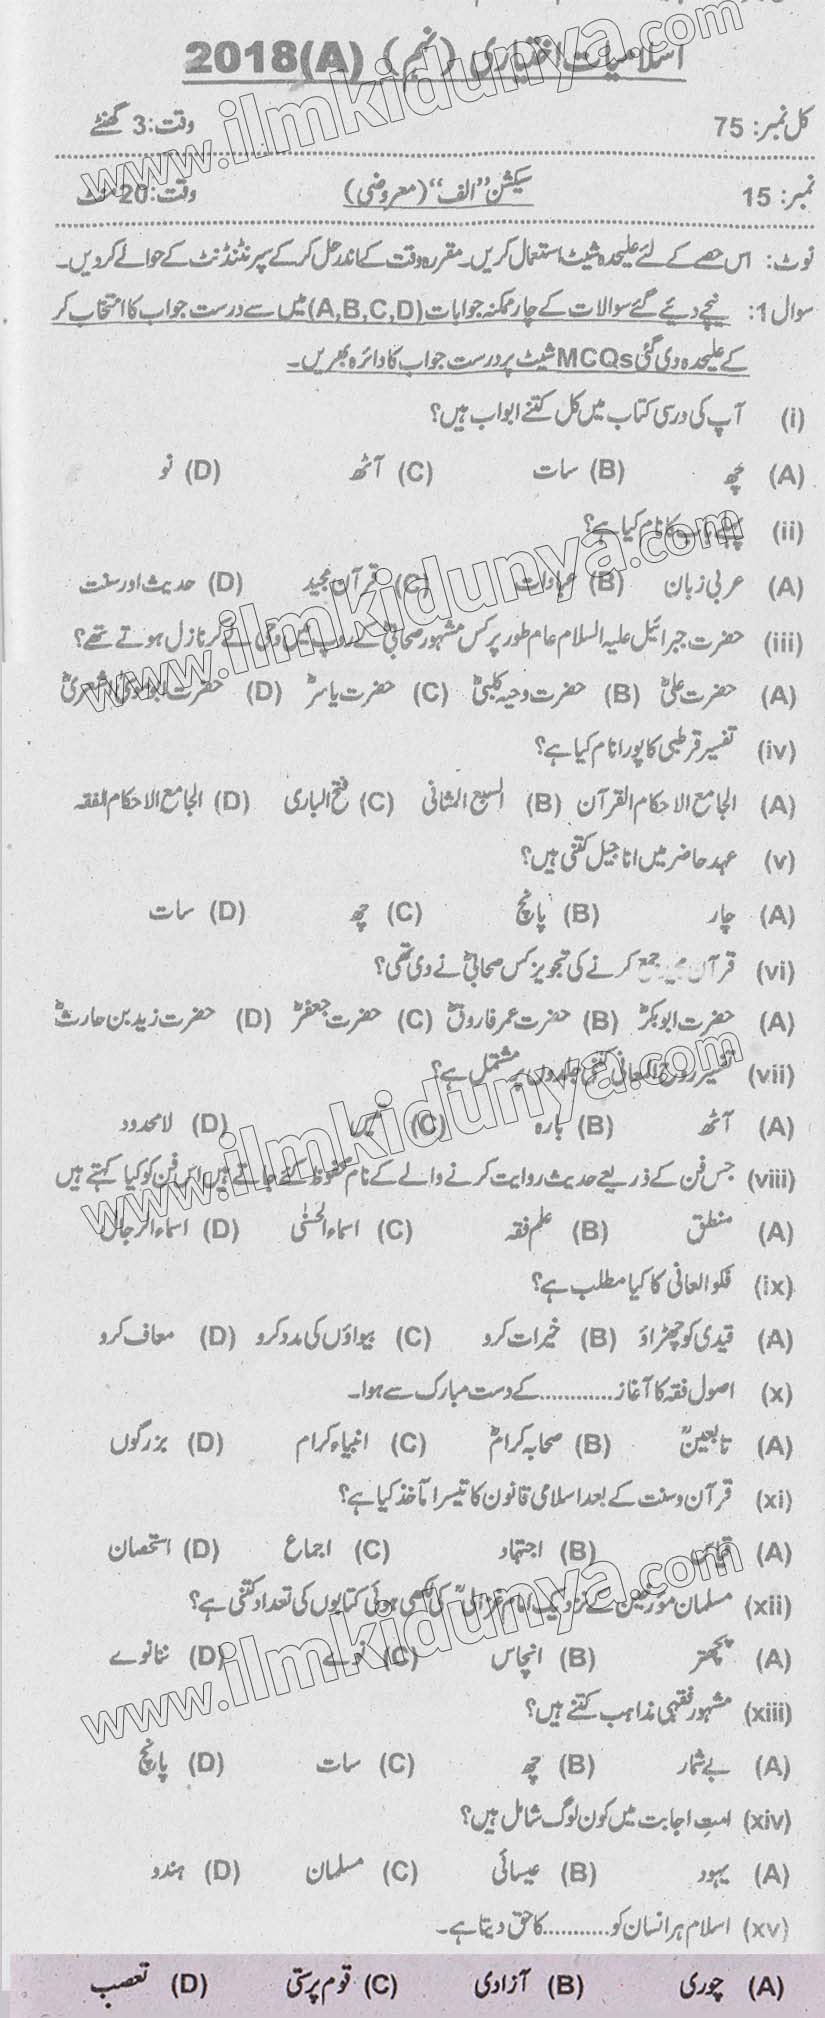 اسلامیات اختیاری (نہم) 2018(A)
کل نمبر: 75 وقت: 3 گھنٹے
نمبر: 15 سیکشن "الف" (معروضی) وقت: 20 منٹ
نوٹ: اس حصے کے لئے علیحدہ شیٹ استعمال کریں۔ مقررہ وقت کے اندر حل کر کے سپرنٹنڈنٹ کے حوالے کردیں۔
سوال 1: نیچے دیئے گئے سوالات کے چار ممکنہ جوابات (A,B,C,D) میں سے درست جواب کا انتخاب کر
کے علیحدہ دی گئی MCQs شیٹ پر درست جواب کا دائرہ بھریں۔
(i) آپ کی درسی کتاب میں کل کتنے ابواب ہیں؟
(A) چھ (B) سات (C) آٹھ (D) نو
(ii) پہلے باب کا نام کیا ہے؟
(A) عربی زبان (B) عبادات (C) قرآن مجید (D) حدیث اور سنت
(iii) حضرت جبرائیل علیہ السلام عام طور پر کس مشہور صحابیؓ کے روپ میں وحی لے کر نازل ہوتے تھے؟
(A) حضرت علیؓ (B) حضرت وحیہ کلبیؓ (C) حضرت یاسرؓ (D) حضرت ابو موسیٰ اشعریؓ
(iv) تفسیر قرطبی کا پورا نام کیا ہے؟
(A) الجامع الاحکام القرآن (B) السبع المثانی (C) فتح الباری (D) الجامع الاحکام الفقہ
(v) عہد حاضر میں اناجیل کتنی ہیں؟
(A) چار (B) پانچ (C) چھ (D) سات
(vi) قرآن مجید جمع کرنے کی تجویز کس صحابیؓ نے دی تھی؟
(A) حضرت ابوبکرؓ (B) حضرت عمر فاروقؓ (C) حضرت جعفرؓ (D) حضرت زید بن حارثؓ
(vii) تفسیر روح المعانی کتنی جلدوں پر مشتمل ہے؟
(A) آٹھ (B) بارہ (C) تیس (D) لامحدود
(viii) جس فن کے ذریعے حدیث روایت کرنے والے کے نام محفوظ کئے جاتے ہیں اس فن کو کیا کہتے ہیں
(A) منطق (B) علم فقہ (C) اسماء الحسنٰی (D) اسماء الرجال
(ix) فکو العانی کا کیا مطلب ہے؟
(A) قیدی کو چھڑاؤ (B) خیرات کرو (C) بیواؤں کی مدد کرو (D) معاف کرو
(x) اصول فقہ کا آغاز ............ کے دست مبارک سے ہوا۔
(A) تابعینؒ (B) صحابہ کرامؓ (C) انبیاء کرام (D) بزرگوں
(xi) قرآن و سنت کے بعد اسلامی قانون کا تیسرا مآخذ کیا ہے؟
(A) قیاس (B) اجتہاد (C) اجماع (D) استحصان
(xii) مسلمان مورخین کے نزدیک امام غزالیؒ کی لکھی ہوئی کتابوں کی تعداد کتنی ہے؟
(A) پچھتر (B) انچاس (C) نوے (D) ننانوے
(xiii) مشہور فقہی مذاہب کتنے ہیں؟
(A) بے شمار (B) چھ (C) سات (D) پانچ
(xiv) امت اجابت میں کون لوگ شامل ہیں؟
(A) یہود (B) عیسائی (C) مسلمان (D) ہندو
(xv) اسلام ہر انسان کو ........... کا حق دیتا ہے۔
(A) چوری (B) آزادی (C) قوم پرستی (D) تعصب
www.ilmkidunya.com
www.ilmkidunya.com
www.ilmkidunya.com
www.ilmkidunya.com